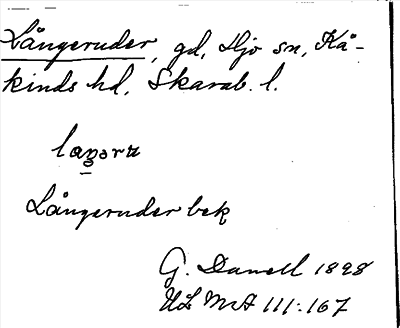 Långeruder, gd, Hjo sn, Kå-
kinds hd, Skarab. l.
Långeruder bek
G. Danell 1898
ULMA 111:167